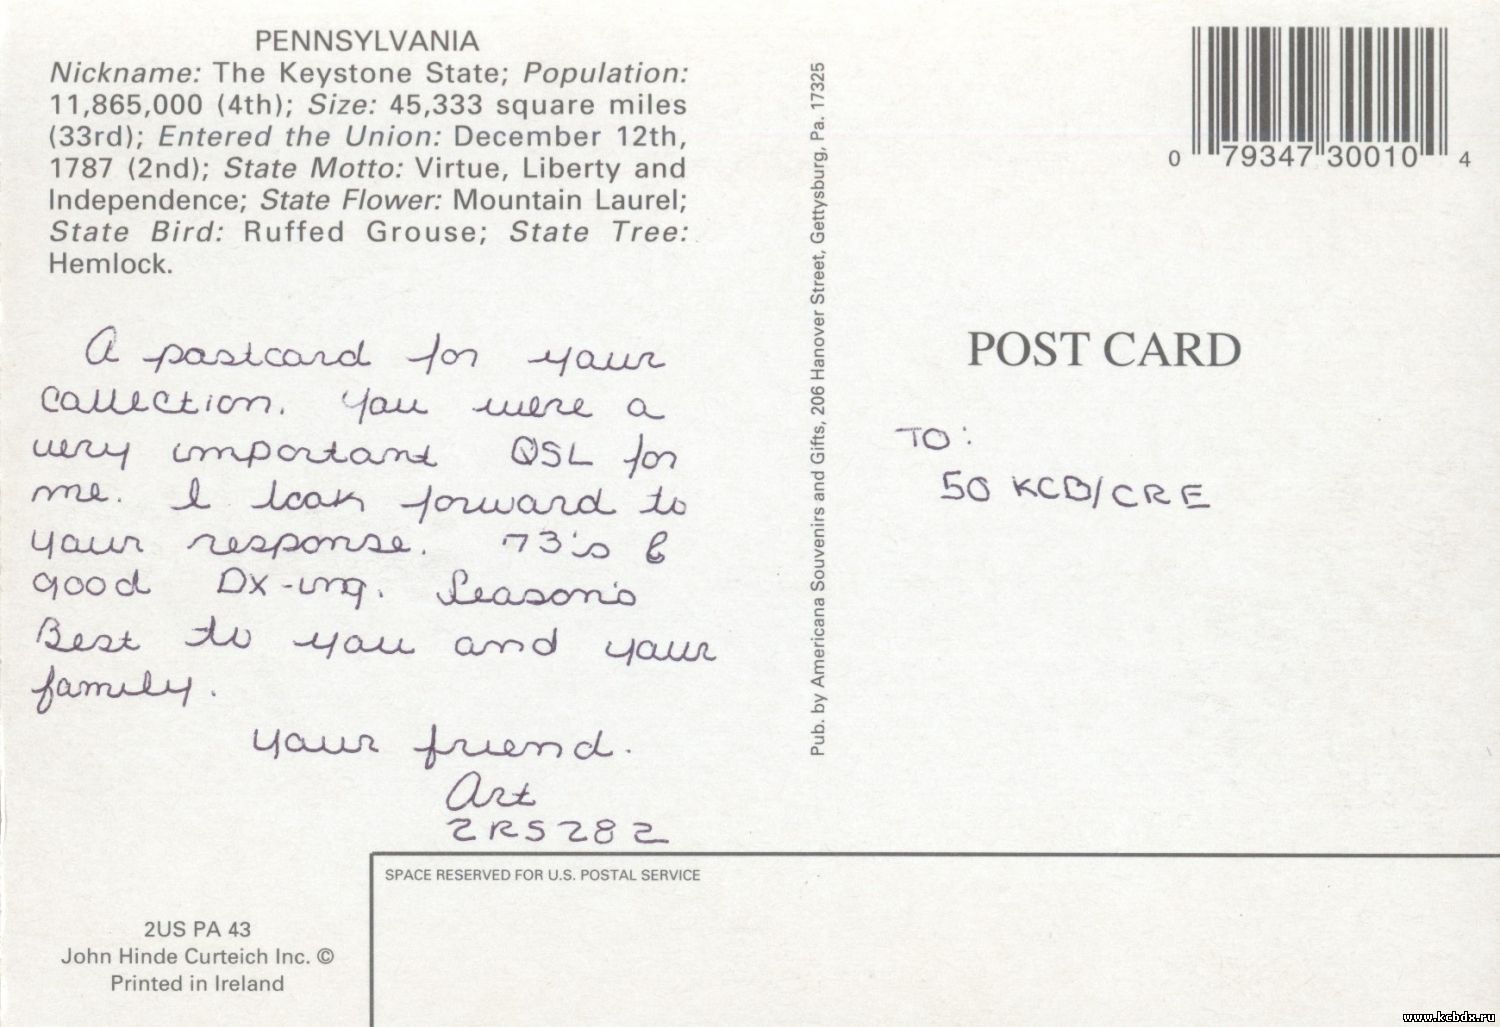 PENNSYLVANIA
Nickname: The Keystone State; Population:
11,865,000 (4th); Size: 45,333 square miles
(33rd); Entered the Union: December 12th,
1787 (2nd); State Motto: Virtue, Liberty and
Independence; State Flower: Mountain Laurel;
State Bird: Ruffed Grouse; State Tree:
Hemlock.
A postcard for your
collection. You were a
very important QSL for
me. I look forward to
your response. 73's &
good DX-ing. Season's
Best to you and your
family.
Your friend.
Art
2RS282
2US PA 43
John Hinde Curteich Inc. ©
Printed in Ireland
Pub. by Americana Souvenirs and Gifts, 206 Hanover Street, Gettysburg, Pa. 17325
0 79347 30010 4
POST CARD
TO:
50 KCB/CRE
SPACE RESERVED FOR U.S. POSTAL SERVICE
www.kcbdx.ru